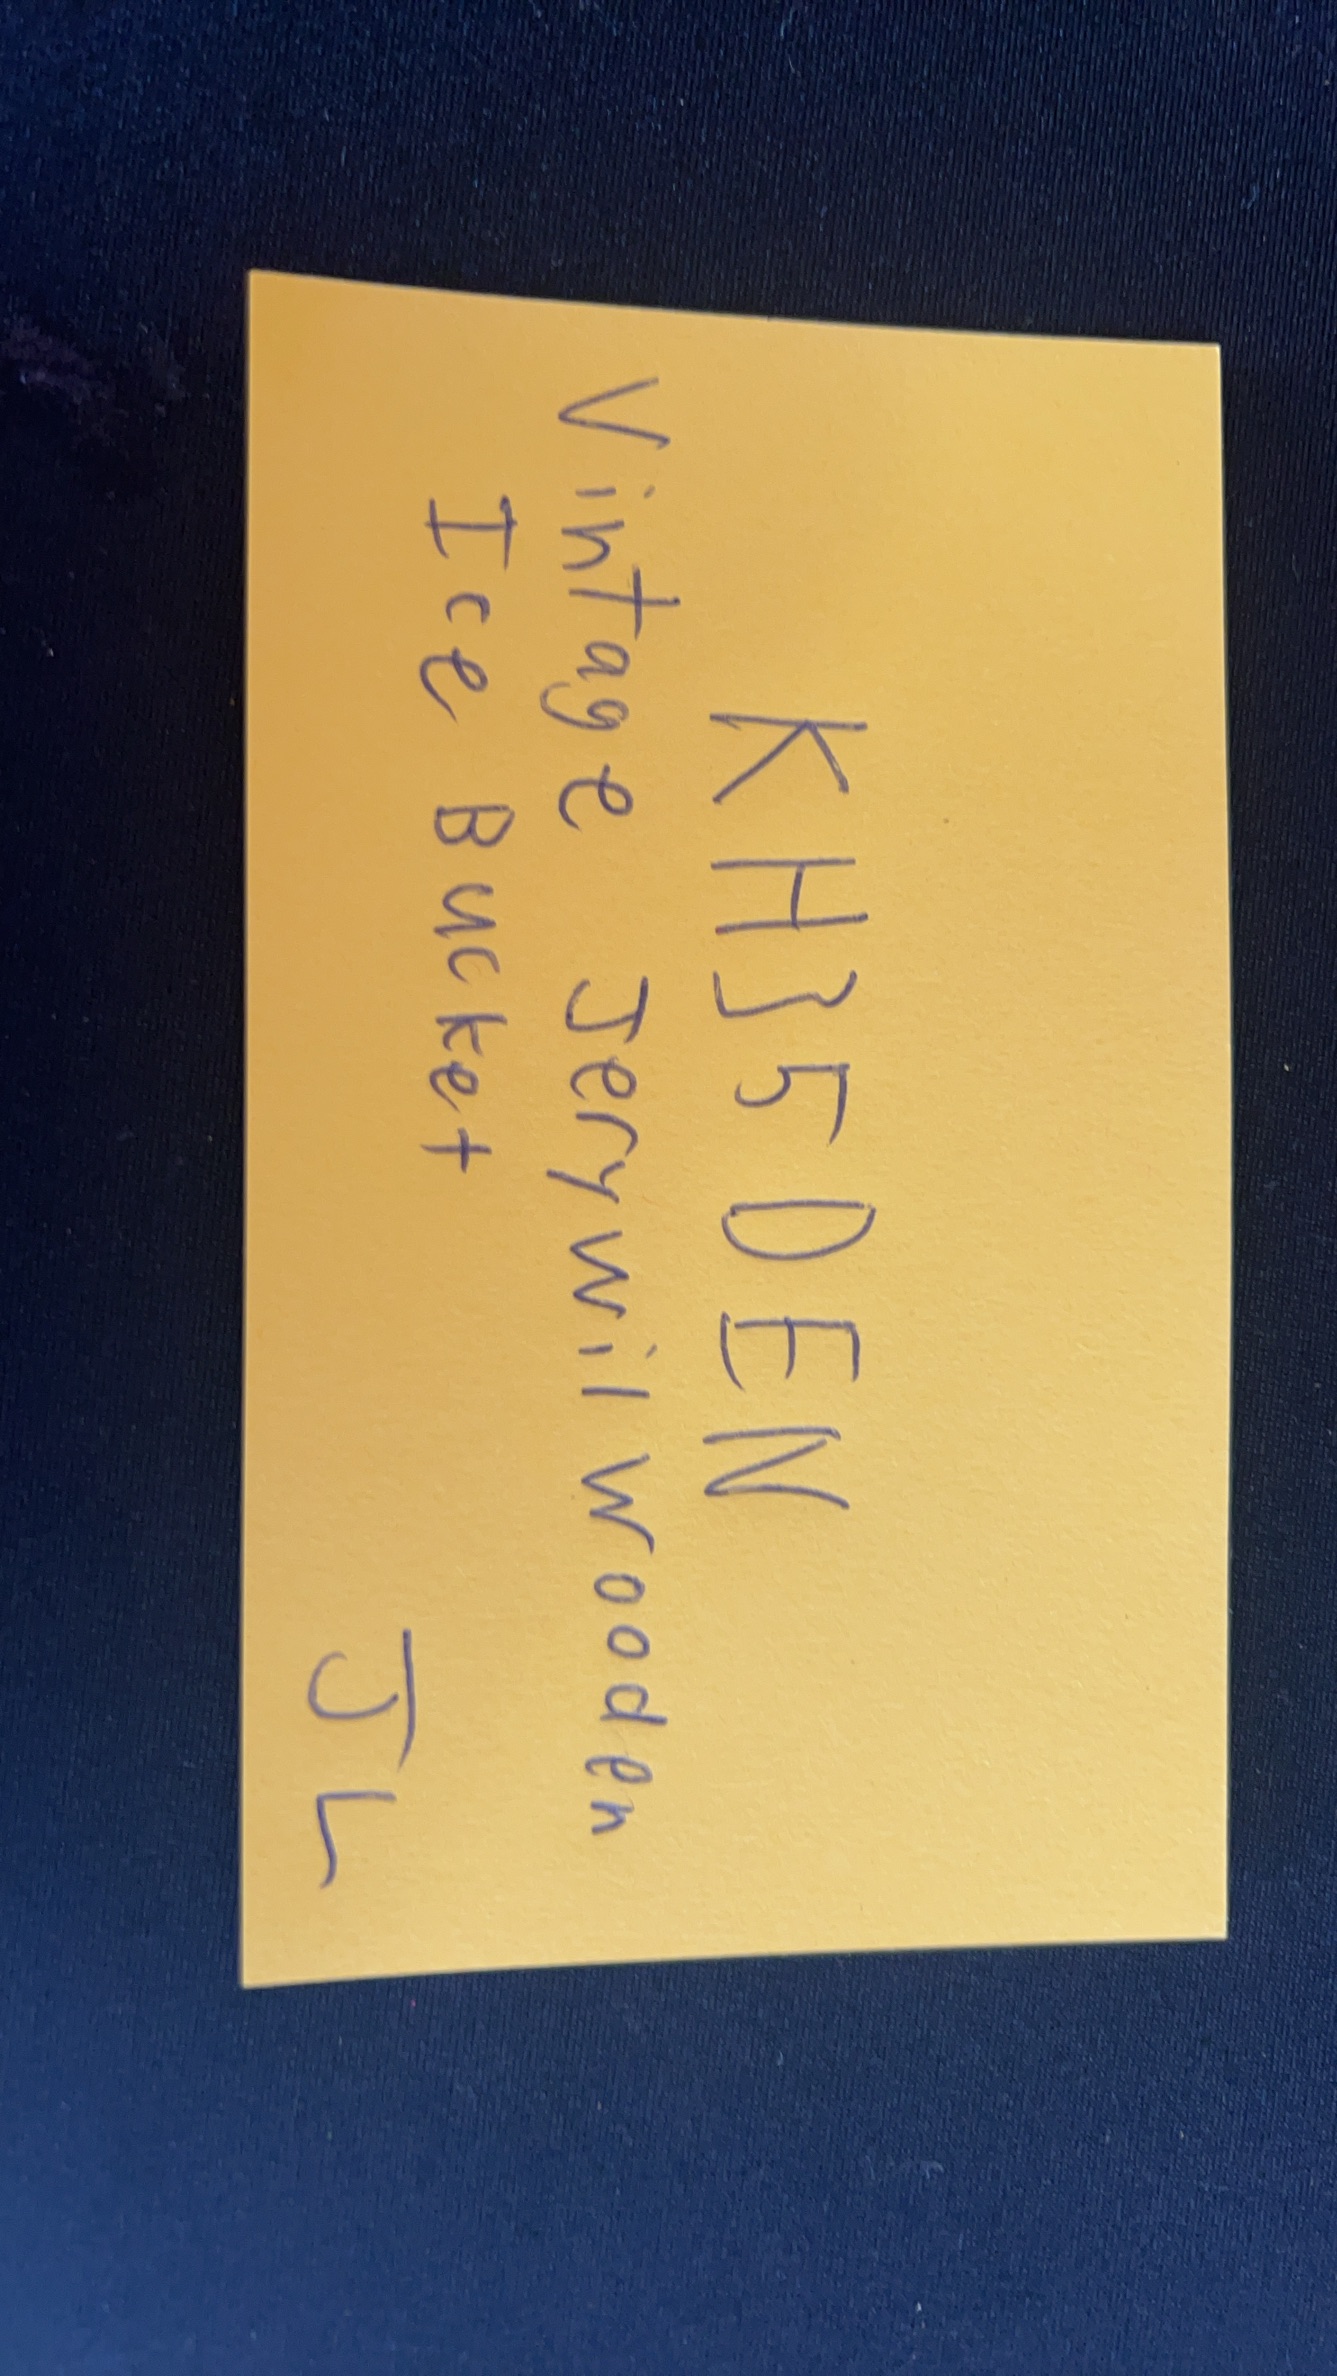 KH35DEN
Vintage Jerywil wooden
Ice Bucket
JL